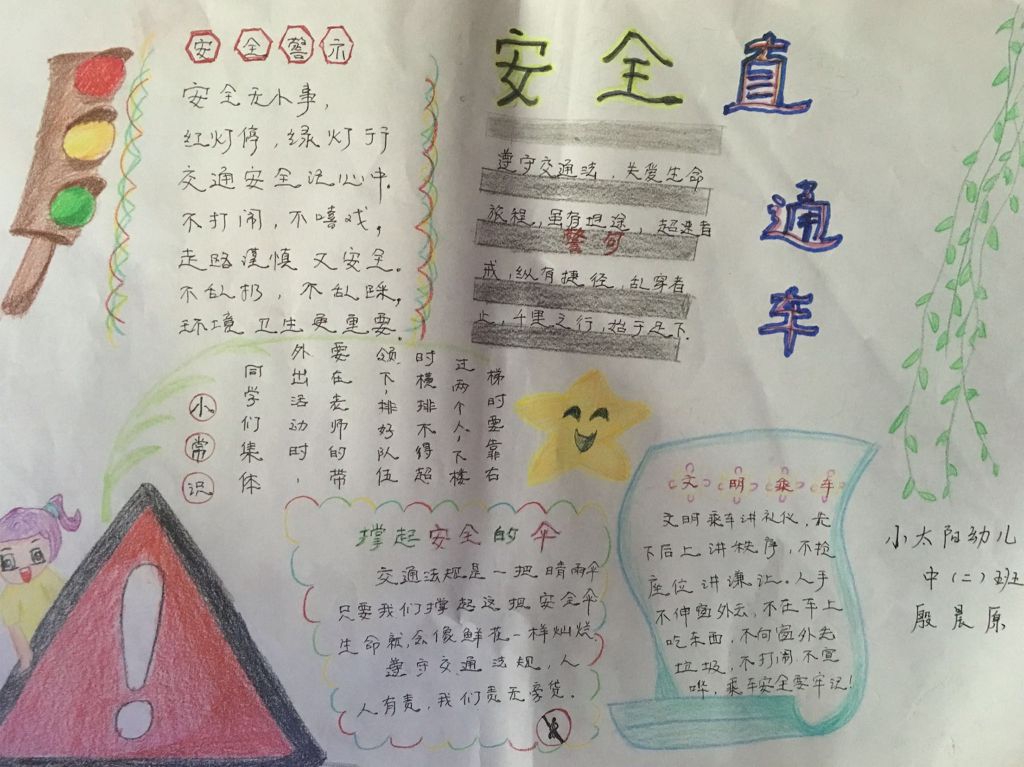 安全警示
安全无小事，
红灯停，绿灯于行
交通安全记心中.
不打闹，不嘻戏，
走路谨慎又安全.
不乱扔，不乱踩，
环境卫生更重要.
安全直通车
遵守交通法，关爱生命
旅程，虽有坦途，超速者
警句
戒，纵有捷径，乱穿者
止，千里之行，始于足下.
小常识
同学们集体
外出活动时，
要在老师的带
领下，排好队伍
时横排不得超
过两个人，下楼
梯时要靠右
撑起安全的伞
交通法规是一把晴雨伞
只要我们撑起这把安全伞
生命就会像鲜花一样灿烂
遵守交通法规，人
人有责，我们责无旁贷.
文明乘车
文明乘车讲礼仪，先
下后上讲秩序，不抢
座位讲谦让.人手
不伸窗外去，不在车上
吃东西，不向窗外丢
垃圾，不打闹不喧
哗，乘车安全要牢记！
小太阳幼儿
中（二）班
殷晨原